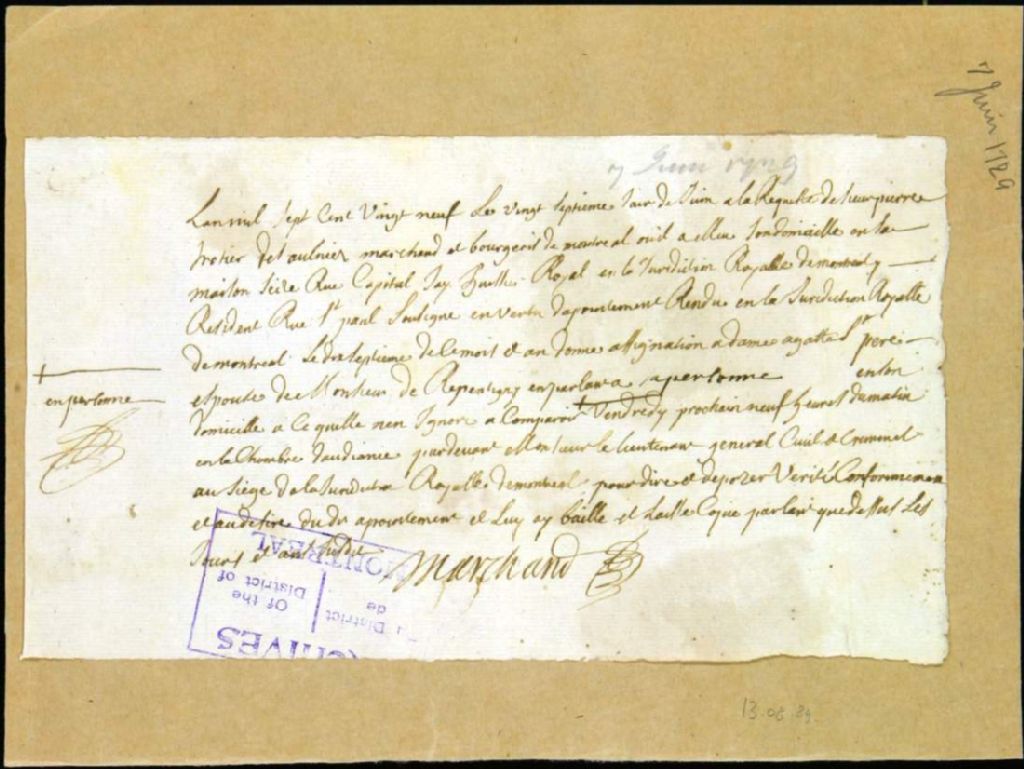 7 Juin 1729
7 Juin 1729
Lan mil sept Cent Vingt neuf Le vingt septieme Jour de Juin a la Requeste de sieur pierre
trotier desaulnier marchand et bourgeois de montreal ou il a elleu son domicille en sa
maison size Rue Capital Jay huissier Royal en la Jurediction Royalle de montreal y
Resident Rue St paul soubsigne en vertu dapointement Rendu en la Jurediction Royalle
de montreal Le dix septieme de Ce mois et an donne assignation a dame agatte St pere
espouse de Monsieur de Repentigny en parlant a sa personne en son
en personne
domicille a Ce quelle nen Ignore a Comparoir Vendredy prochain neuf heures du matin
en la Chambre daudiance pardevant Monsieur le lieutenant general Civil et Criminel
au siege de la Jurediction Royalle de montreal pour dire et deposer Verité Conformement
et au desire du dt apointement et Luy ay baille et Laisse Copie parlant que dessus Les
Jours et an susdit
Marchand
MONTREAL
Of the
District of
Du District
de
ARCHIVES
13.08.89